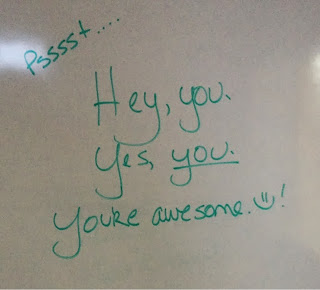 Psssst....
Hey, you.
Yes, you.
You're awesome. ☺!